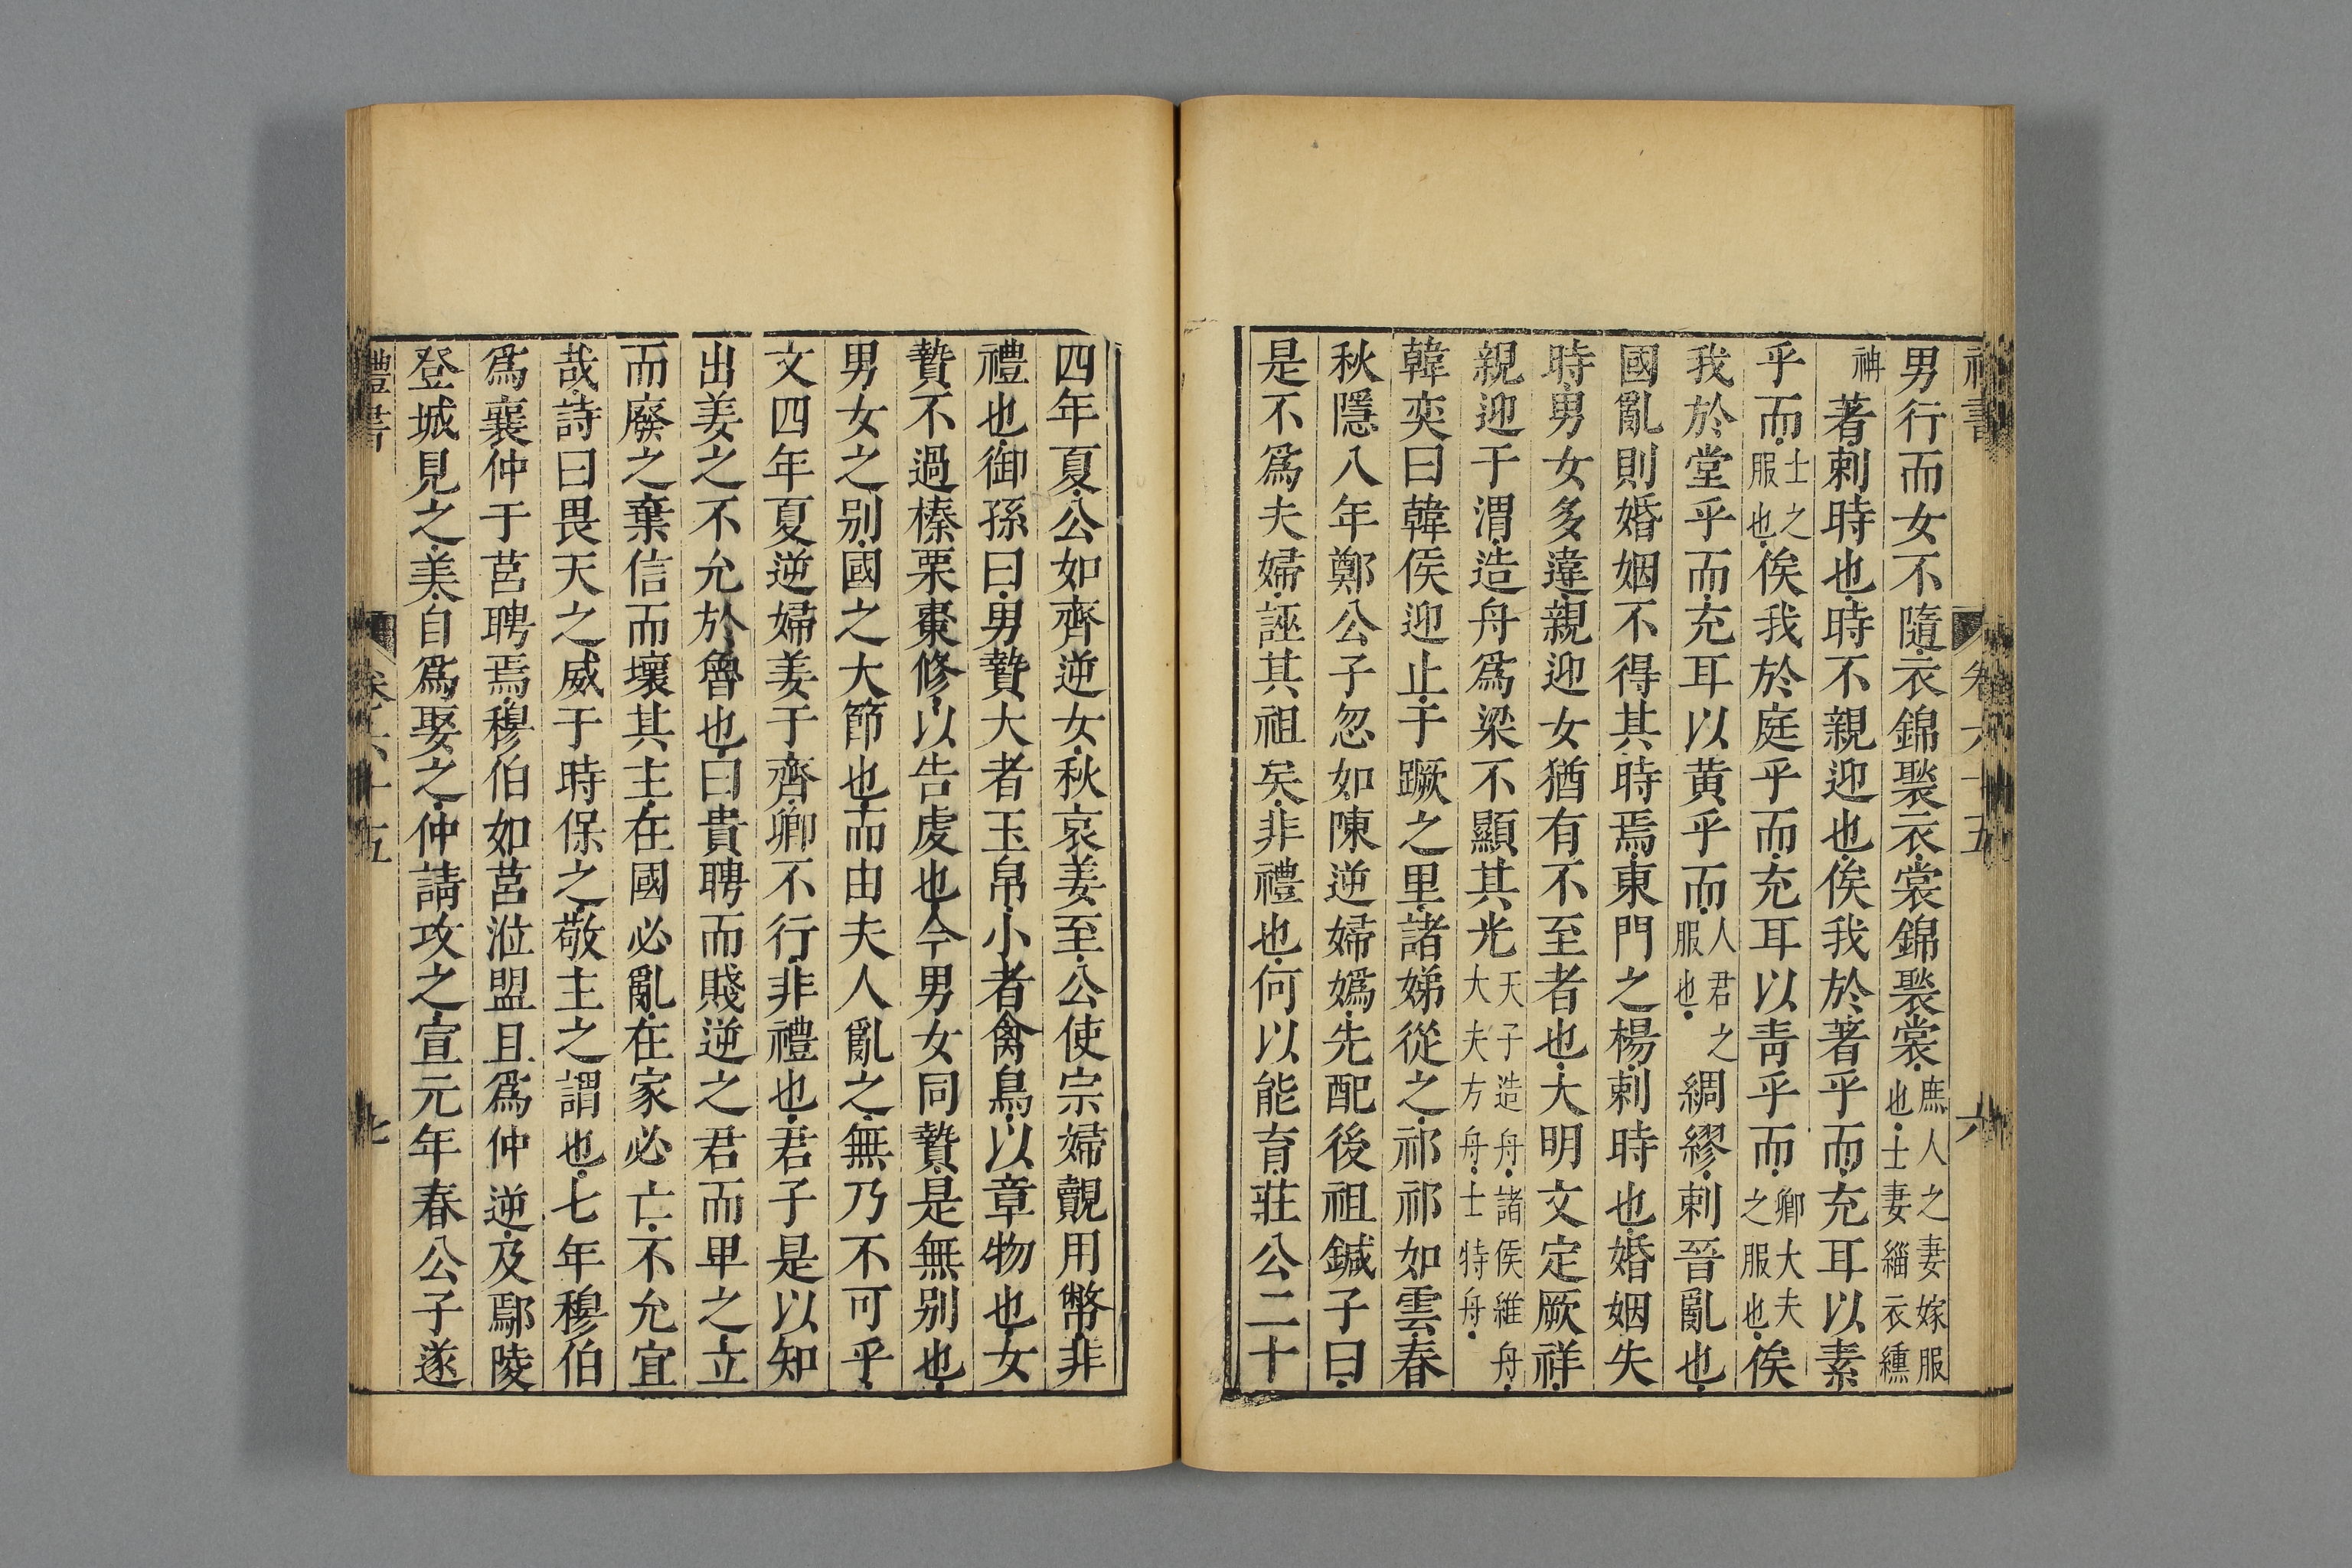 禮書 卷六十五 六
男行而女不隨衣錦褧衣裳錦褧裳庶人之妻嫁服也士妻緇衣纁
袡著刺時也時不親迎也俟我於著乎而充耳以素
乎而士之服也俟我於庭乎而充耳以靑乎而卿大夫之服也俟
我於堂乎而充耳以黄乎而人君之服也綢繆刺晉亂也
國亂則婚姻不得其時焉東門之楊刺時也婚姻失
時男女多違親迎女猶有不至者也大明文定厥祥
親迎于渭造舟爲梁不顯其光天子造舟諸侯維舟大夫方舟士特舟
韓奕曰韓侯迎止于蹶之里諸娣從之祁祁如雲春
秋隱八年鄭公子忽如陳逆婦嬀先配後祖鍼子曰
是不爲夫婦誣其祖矣非禮也何以能育莊公二十
四年夏公如齊逆女秋哀姜至公使宗婦覿用幣非
禮也御孫曰男贄大者玉帛小者禽鳥以章物也女
贄不過榛栗棗修以告虔也今男女同贄是無别也
男女之别國之大節也而由夫人亂之無乃不可乎
文四年夏逆婦姜于齊卿不行非禮也君子是以知
出姜之不允於魯也曰貴聘而賤逆之君而卑之立
而廢之棄信而壞其主在國必亂在家必亡不允宜
哉詩曰畏天之威于時保之敬主之謂也七年穆伯
爲襄仲于莒聘焉穆伯如莒涖盟且爲仲逆及鄢陵
登城見之美自爲娶之仲請攻之宣元年春公子遂
禮書 卷六十五 七